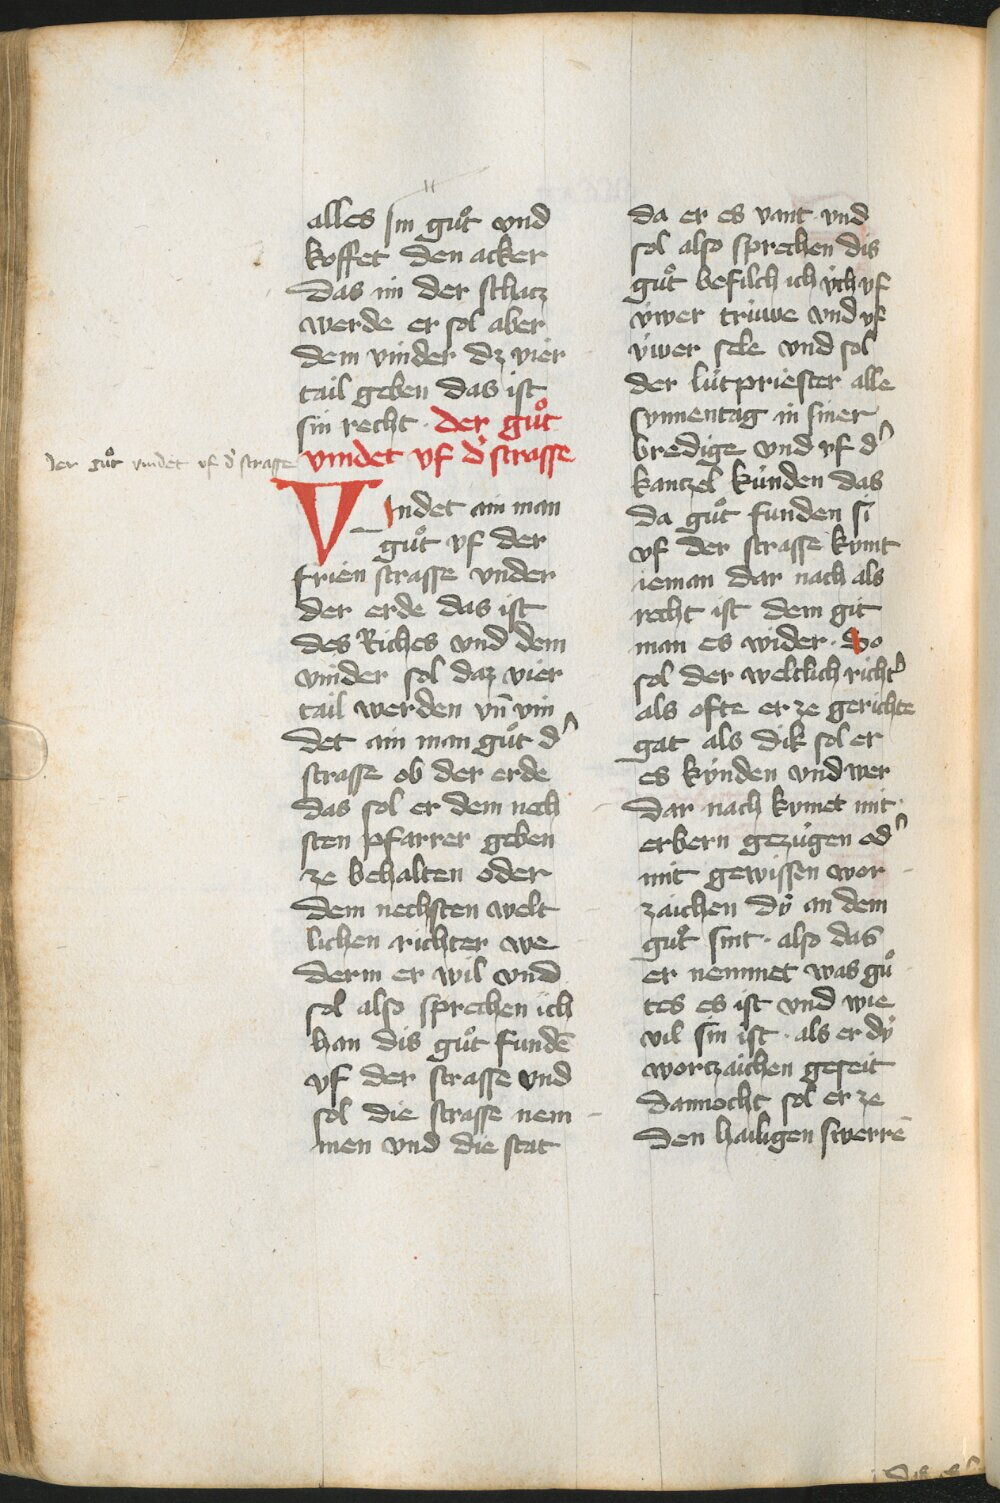 alles sin guͦt vnd
koffet den acker
das im der schacz
werde er sol aber
dem vinder dz vier
tail geben das ist
sin recht · der guͦt
vindet vf dˀ strasse
der guͦt vindet vf dˀ strasse
Vindet ain man
guͦt vf der
frien strasse vnder
der erde das ist
des Riches vnd dem
vinder sol daz vier
tail werden vn̄ vin
det ain man guͦt dˀ
strasse ob der erde
das sol er dem nech
sten pfarrer geben
ze behalten oder
dem nechsten welt
lichen richter we
derm er wil vnd
sol also sprechen ich
han dis guͦt fundē
vf der strasse vnd
sol die strasse nem
men vnd die stat
da er es vant vnd
sol also sprechen dis
guͦt befilch ich v̈ch vf
v̈wer trúwe vnd vf
v́wer sele vnd sol
der lútpriester alle
synnentag in siner
bredige vnd vf dˀ
kantzel kúnden das
da guͦt funden si
vf der strasse kymt
ieman dar nach als
recht ist dem git
man es wider · So
sol der weltlich richtˀ
als ofte er ze gerichte
gat als dik sol er
es kýnden vnd wer
dar nach kymet mit
erbern gezúgen odˀ
mit gewissen wor
zaichen dÿ an dem
guͦt sint · also das
er nemmet was guͦ
tes es ist vnd wie
vil sin ist · als er dÿ
wortzaichen geseit
dannocht sol er ze
den hailigen swerrē